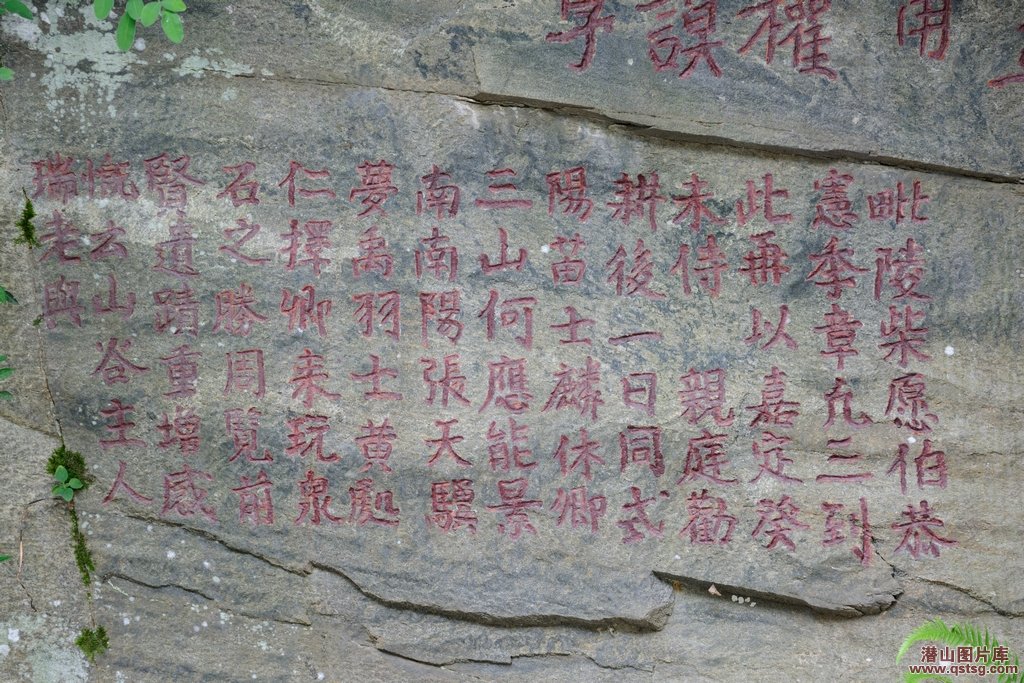 用
權
謨
毗陵柴愿伯恭
憲季章凢三到
此再以嘉定癸
未侍親庭勸
耕後一日同弋
陽苗士麟休卿
三山何應能景
南南陽張天驥
夢禹羽士黄處
仁擇卿来玩泉
石之勝周覽前
賢遺蹟重增感
慨云山谷主人
瑞老與
潜山图片库
www.qstsg.com